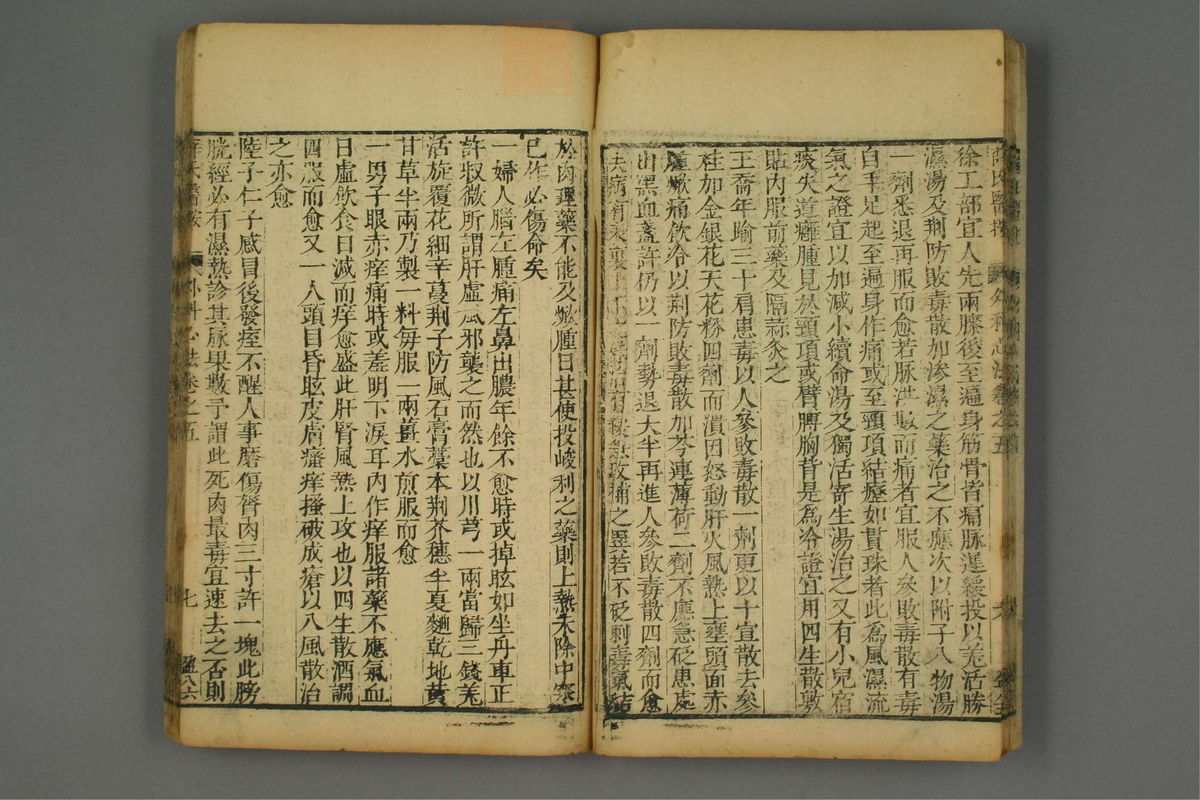 薛氏醫按 外科心法卷之五 六
徐工部宜人先兩膝後至遍身筋骨皆痛脉遲緩投以羗活勝
濕湯及荆防敗毒散加滲濕之藥治之不應次以附子八物湯
一劑悉退再服而愈若脉洪數而痛者宜服人參敗毒散有毒
自手足起至遍身作痛或至頸項結癧如貫珠者此為風濕流
氣之證宜以加减小續命湯及獨活寄生湯治之又有小兒宿
痰失道癰腫見於頸項或臂膊胸背是為冷證宜用四生散敷
貼内服前藥及隔蒜灸之
王喬年踰三十肩患毒以人參敗毒散一劑更以十宣散去參
桂加金銀花天花粉四劑而潰因怒動肝火風熱上壅頭面赤
腫焮痛飲冷以荆防敗毒散加芩連薄荷二劑不應急砭患處
出黑血盞許仍以一劑勢退大半再進人參敗毒散四劑而愈
夫病有表裏上下急攻補之異若不砭刺毒氣結
於肉理藥不能及焮腫日甚使投峻利之藥則上熱未除中寒
已作必傷命矣
一婦人腦左腫痛左鼻出膿年餘不愈時或掉眩如坐舟車正
許叔微所謂肝虛風邪襲之而然也以川芎一兩當歸三錢羗
活旋覆花細辛蔓荆子防風石膏藁本荆芥穗半夏麯乾地黄
甘草半兩乃製一料每服一兩薑水煎服而愈
一男子眼赤痒痛時或羞明下淚耳内作痒服諸藥不應氣血
日虛飲食日减而痒愈盛此肝腎風熱上攻也以四生散酒調
四服而愈又一人頭目昏眩皮膚瘙痒搔破成瘡以八風散治
之亦愈
陸子仁子感冒後發痓不醒人事磨傷臀肉三寸許一塊此膀
胱經必有濕熱診其脉果數予謂此死肉最毒宜速去之否則
薛氏醫按 外科心法卷之五 七 盈八六